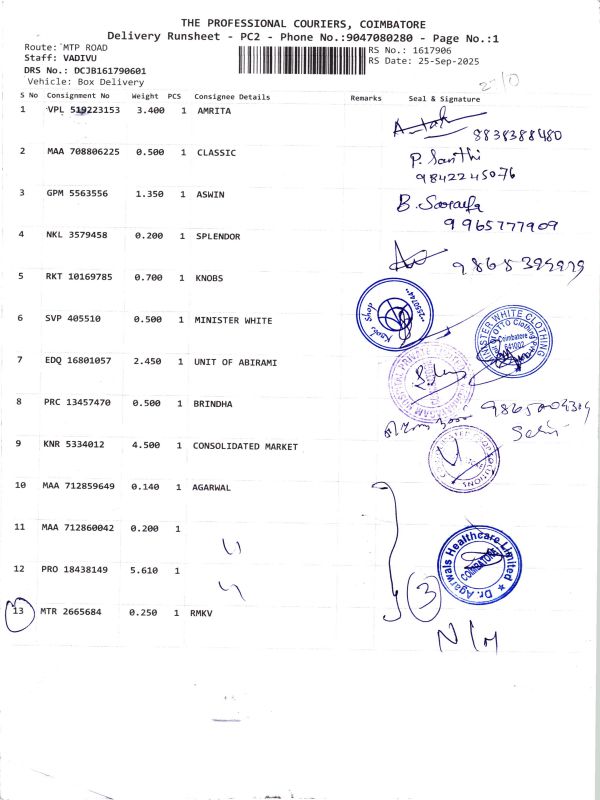 THE PROFESSIONAL COURIERS, COIMBATORE
Delivery Runsheet - PC2 - Phone No.:9047080280 - Page No.:1
Route: MTP ROAD
RS No.: 1617906
Staff: VADIVU
RS Date: 25-Sep-2025
DRS No.: DCJB161790601
Vehicle: Box Delivery
S No Consignment No Weight PCS Consignee Details Remarks Seal & Signature
1 VPL 519223153 3.400 1 AMRITA
8838388480
2 MAA 708806225 0.500 1 CLASSIC
P. Santhi
9842245076
3 GPM 5563556 1.350 1 ASWIN
B.
9965777909
4 NKL 3579458 0.200 1 SPLENDOR
5 RKT 10169785 0.700 1 KNOBS
Knobs Shop
"2550744"
6 SVP 405510 0.500 1 MINISTER WHITE
MINISTER WHITE CLOTHING
OTTO Clothing
Coimbatore
641002
7 EDQ 16801057 2.450 1 UNIT OF ABIRAMI
8 PRC 13457470 0.500 1 BRINDHA
9 KNR 5334012 4.500 1 CONSOLIDATED MARKET
10 MAA 712859649 0.140 1 AGARWAL
11 MAA 712860042 0.200 1
12 PRO 18438149 5.610 1
Dr. Agarwals Healthcare Limited
COIMBATORE
3
13 MTR 2665684 0.250 1 RMKV